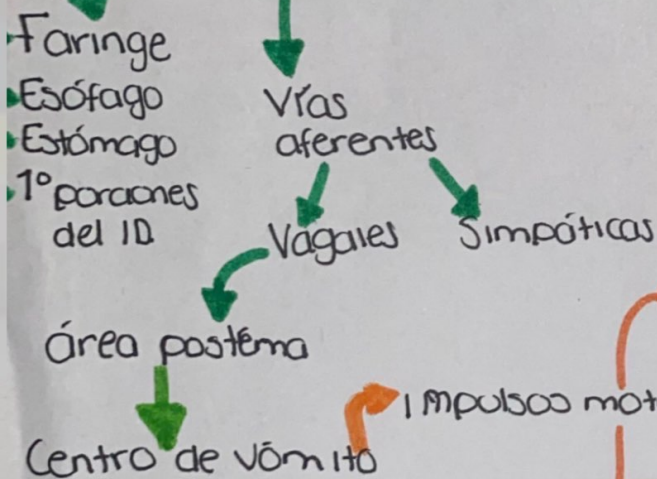 Faringe
Esófago
Estómago
1º porciones
del ID
Vías
aferentes
Vagales
Simpáticas
área postéma
Centro de vómito
Impulsos mot